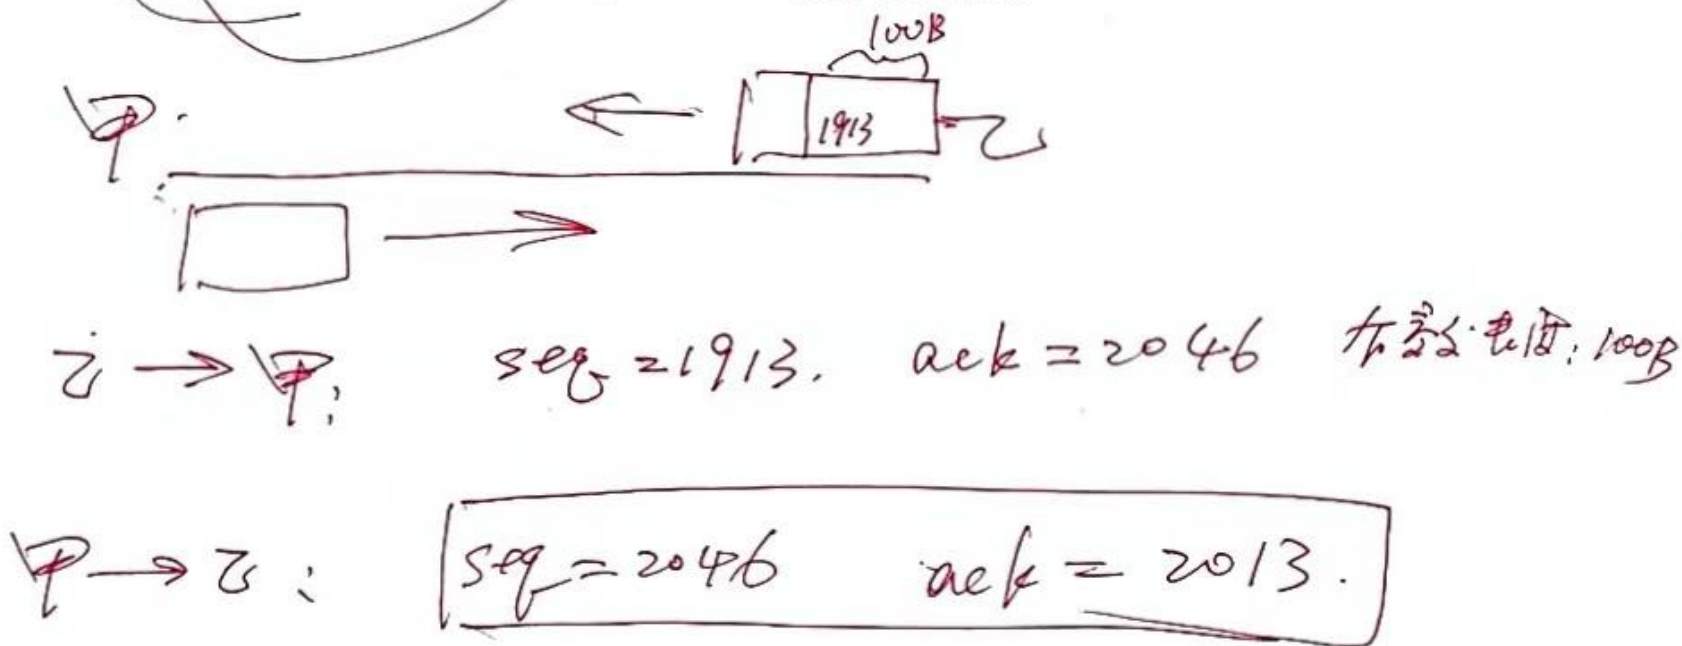 100B
甲.
1913
乙
乙 → 甲: seq = 1913. ack = 2046 有效长度: 100B
甲 → 乙: seq = 2046 ack = 2013.